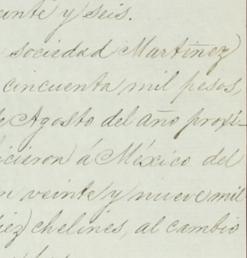 veinte y seis.
sociedad Martinez
cincuenta mil pesos,
de Agosto del año proxi-
icieron á México del
n veinte y nueve mil
iez chelines, al cambio